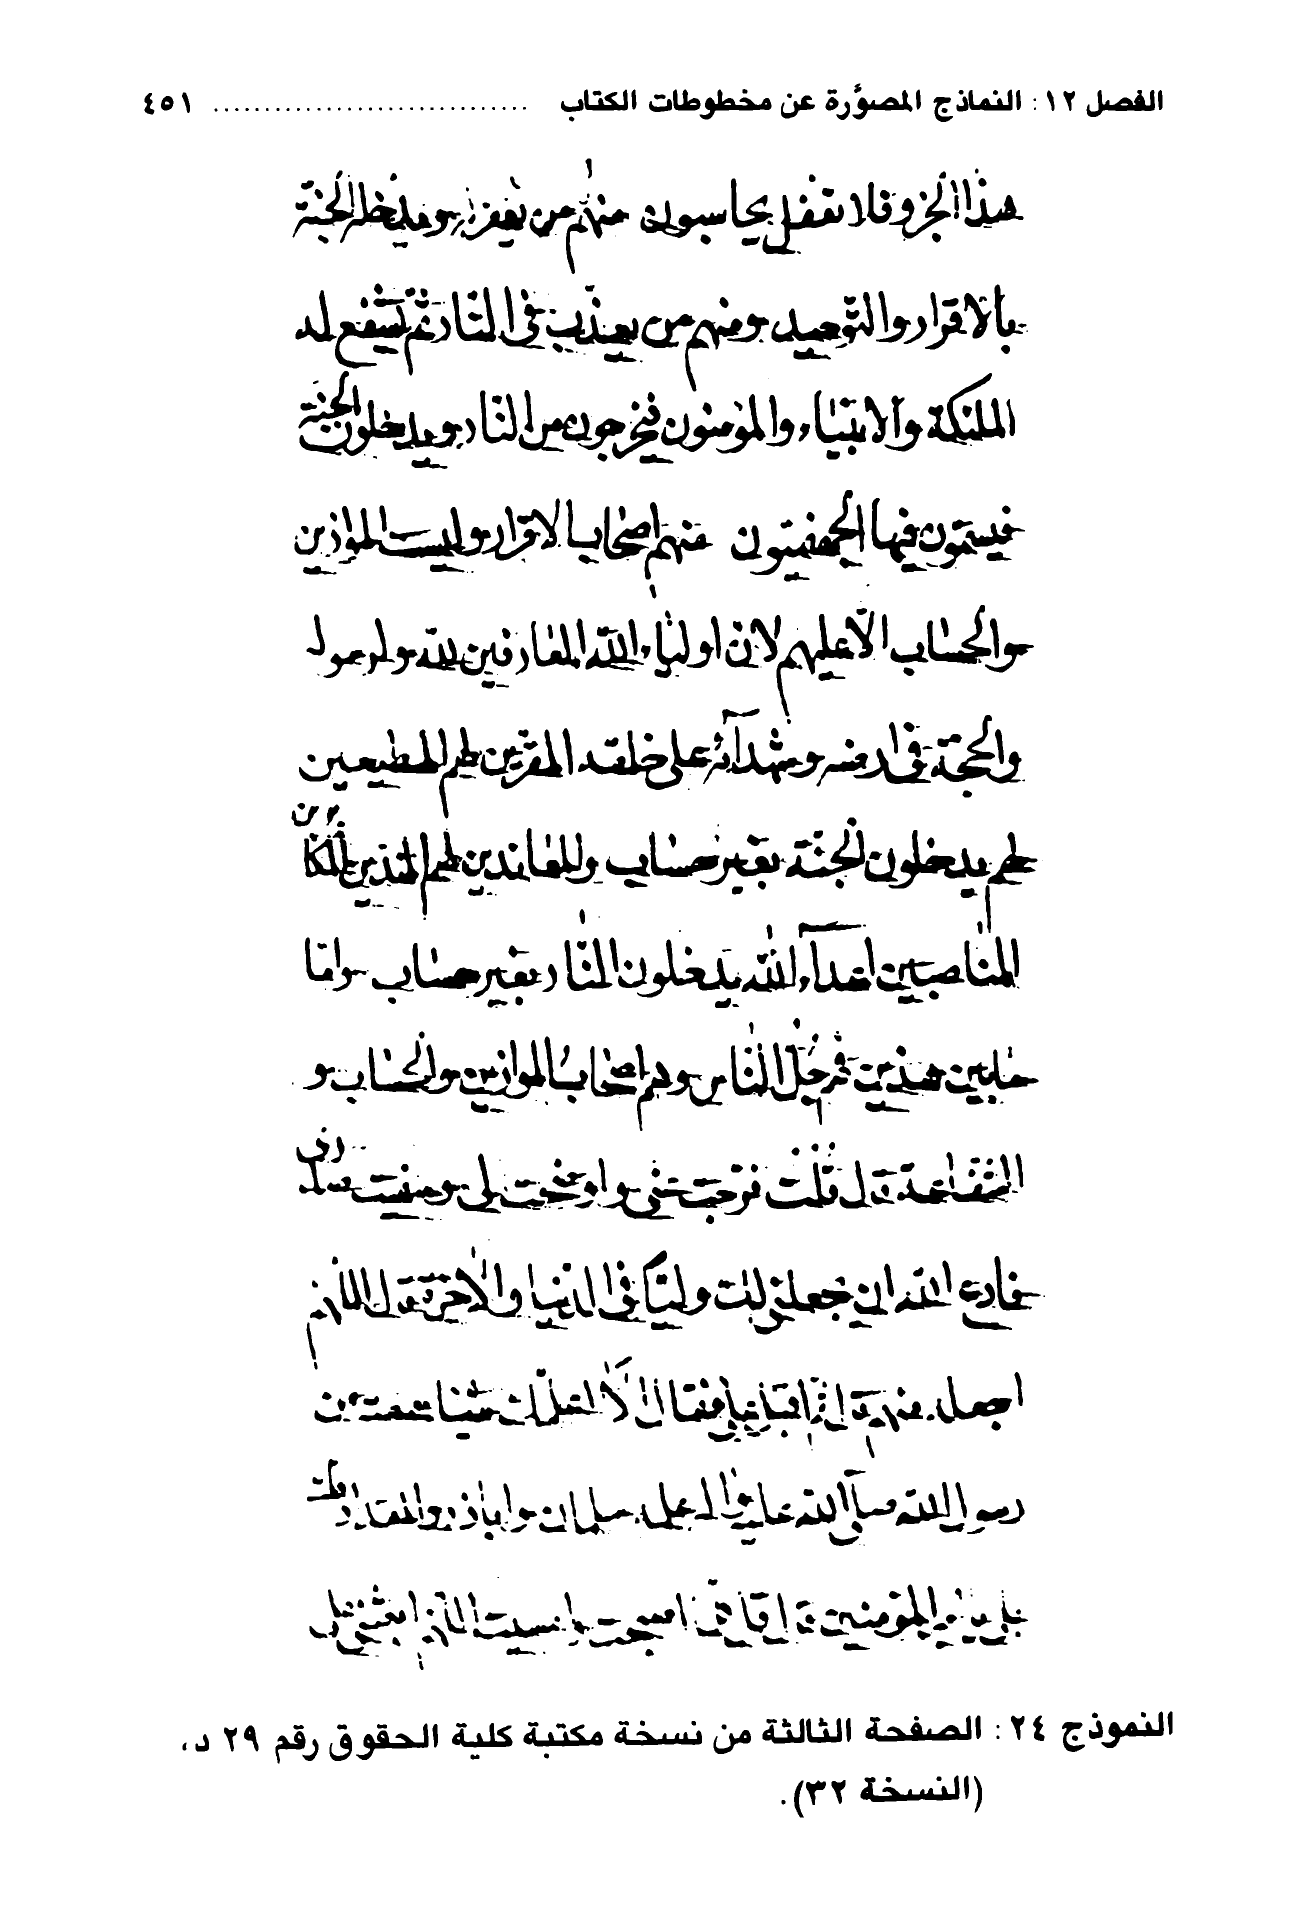 الفصل ١٢: النماذج المصوَّرة عن مخطوطات الكتاب .............................. ٤٥١
يحاسبون منهم من يغفر له ويدخله الجنّة
بالاقرار والتّوحيد ومنهم من يعذّب فى النّار ثمّ تشفع له
الملئكة والانبياء والمؤمنون فيخرجون من النّار ويدخلون الجنّة
فيسمّون فيها الجهنميّون منهم اصحاب الاقرار وليست الموازين
والحساب الّا عليهم لانّ اولياء الله العارفين لله ولرسوله
والحجّة فى ارضه وشهدآئه على خلقه المقرّين لهم المطيعين
لهم يدخلون الجنّة بغير حساب والمعاندين لهم
الناصبين اعدآء الله يدخلون النّار بغير حساب وامّا
مابين هذين فهم جلّ النّاس وهم اصحاب الموازين والحساب و
الشّفاعة قال قلت فرّجت عنّى واوضحت لى وشفيت صدرى
فادع الله ان يجعلنى لك وليّا فى الدّنيا والآخرة قال اللّهم
اجعله منهم قال ثمّ اقبل علىّ فقال الا اعلّمك شيئا سمعته من
رسول الله صلّى الله عليه وآله علمه سلمان واباذر والمقداد
قال قل كلّما اصبحت وامسيت اللّهم ابعثنى على
النموذج ٢٤: الصفحة الثالثة من نسخة مكتبة كلية الحقوق رقم ٢٩ د،
(النسخة ٣٢).